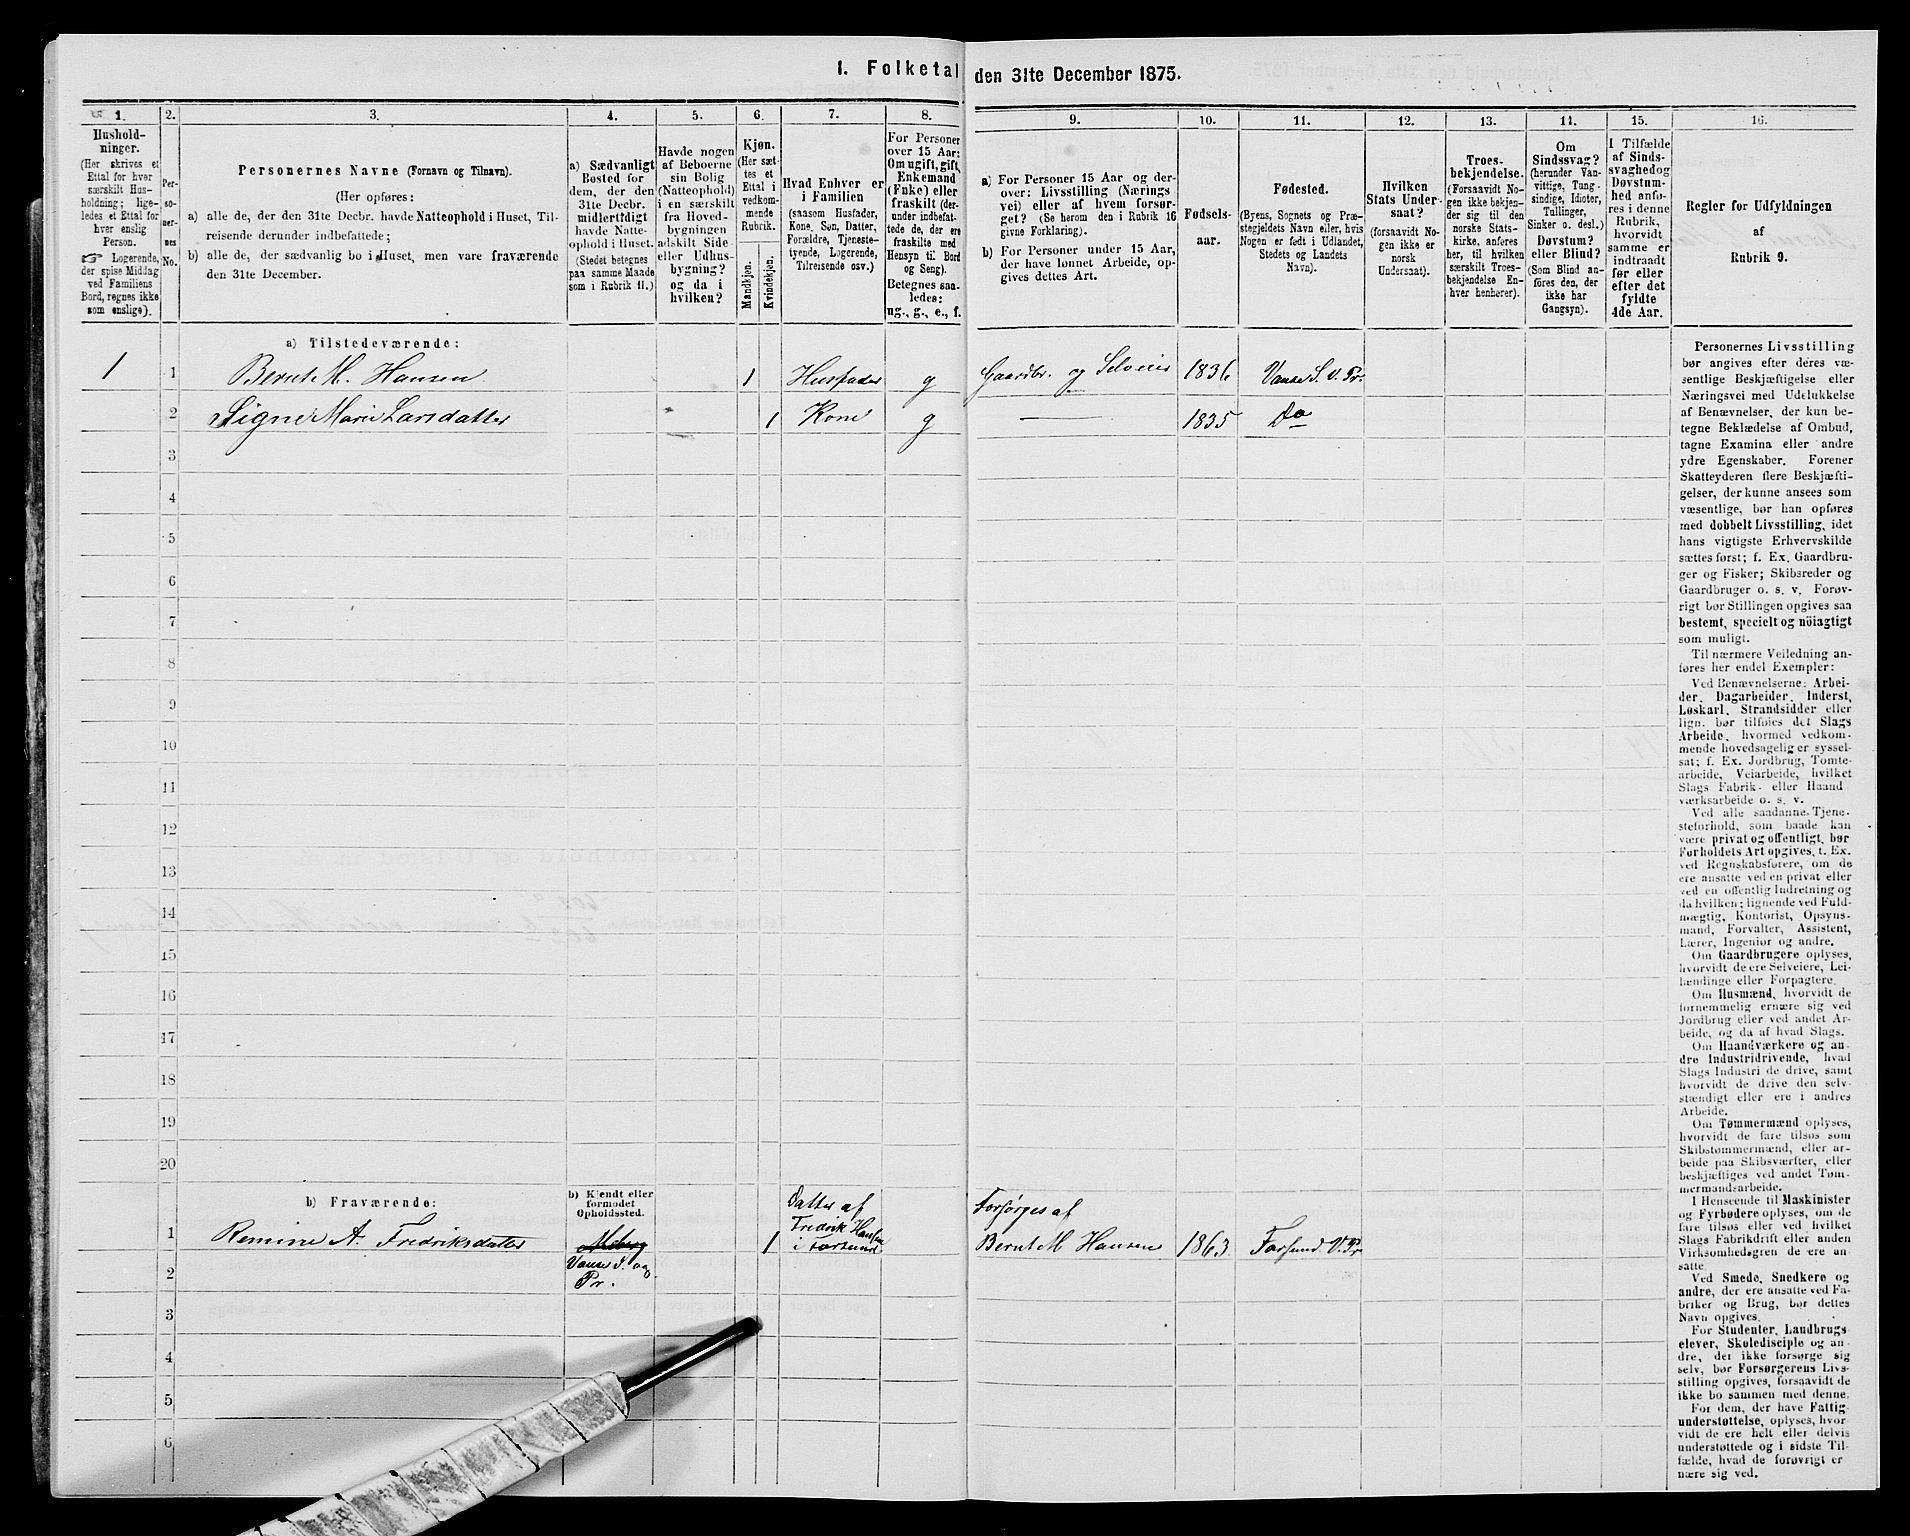 1. Folketal den 31te December 1875.
1.
Hushold-
ninger.
(Her skrives et
Ettal for hver
særskilt Hus-
holdning; lige-
ledes et Ettal for
hver enslig
Person.
☞ Logerende,
der spise Middag
ved Familiens
Bord, regnes ikke
som enslige).
2.
Per-
so-
ner-
nes
No.
3.
Personernes Navne (Fornavn og Tilnavn).
(Her opføres:
a) alle de, der den 31te Decbr. havde Natteophold i Huset, Til-
reisende derunder indbefattede;
b) alle de, der sædvanlig bo i Huset, men vare fraværende
den 31te December.
4.
a) Sædvanligt
Bosted for
dem, der den
31te Decbr.
midlertidigt
havde Natte-
ophold i Huset.
(Stedet betegnes
paa samme Maade
som i Rubrik 11.)
5.
Havde nogen
af Beboerne
sin Bolig
(Natteophold)
i en særskilt
fra Hoved-
bygningen
adskilt Side
eller Udhus-
bygning?
og da i
hvilken?
6.
Kjøn.
(Her sæt-
tes et
Ettal i
vedkom-
mende
Rubrik.
Mandkjøn.
Kvindekjøn.
7.
Hvad Enhver er
i Familien
(saasom Husfader,
Kone, Søn, Datter,
Forældre, Tjeneste-
tyende, Logerende,
Tilreisende osv.)
8.
For Personer
over 15 Aar:
Om ugift, gift,
Enkemand
(Enke) eller
fraskilt (der-
under indbefat-
tede de, der ere
fraskilte med
Hensyn til Bord
og Seng).
Betegnes saa-
ledes:
ug., g., e., f.
9.
a) For Personer 15 Aar og der-
over: Livsstilling (Nærings
vei) eller af hvem forsør-
get? (Se herom den i Rubrik 16
givne Forklaring).
b) For Personer under 15 Aar,
der have lønnet Arbeide, op-
gives dettes Art.
10.
Fødsels-
aar.
11.
Fødested.
(Byens, Sognets og Præ-
stegjeldets Navn eller, hvis
Nogen er født i Udlandet,
Stedets og Landets
Navn).
12.
Hvilken
Stats Under-
saat?
(forsaavidt No-
gen ikke er
norsk
Undersaat).
13.
Troes-
bekjendelse.
(Forsaavidt No-
gen ikke bekjen-
der sig til den
norske Stats-
kirke, anføres
her, til hvilken
særskilt Troes-
bekjendelse En-
hver henhører).
14.
Om
Sindssvag?
(herunder Van-
vittige, Tung-
sindige, Idioter,
Tullinger,
Sinker o. desl.)
Døvstum?
eller Blind?
(Som Blind an-
føres den, der
ikke har
Gangsyn).
15.
I Tilfælde
af Sinds-
svaghed og
Døvstum-
hed anfø-
res i denne
Rubrik,
hvorvidt
samme er
indtraadt
før eller
efter det
fyldte
4de Aar.
16.
Regler for Udfyldningen
af
Rubrik 9.
a) Tilstedeværende:
1 1 Bernt M. Hansen 1 Husfader g Gaardbr. og Selveier 1836 Vanse S. V. Pr.
2 Signe Marie Larsdatter 1 Kone g — 1835 Do
3
4
5
6
7
8
9
10
11
12
13
14
15
16
17
18
19
20
b) Fraværende:
b) Kjendt eller
formodet
Opholdssted.
Datter af
Fredrik Hansen
i Farsund
Forsørges af
1 Remine A. Fredriksdatter 1 Bernt M Hansen 1863 Farsund V. Pr
Vanse S. og
Pr.
2
3
4
5
6
Personernes Livsstilling
bør angives efter deres væ-
sentlige Beskjæftigelse eller
Næringsvei med Udelukkelse
af Benævnelser, der kun be-
tegne Beklædelse af Ombud,
tagne Examina eller andre
ydre Egenskaber. Forener
Skatteyderen flere Beskjæfti-
gelser, der kunne ansees som
væsentlige, bør han opføres
med dobbelt Livsstilling, idet
hans vigtigste Erhvervskilde
sættes først; f. Ex. Gaardbru-
ger og Fisker; Skibsreder og
Gaardbruger o. s. v. Forøv-
rigt bør Stillingen opgives saa
bestemt, specielt og nöiagtigt
som muligt.
Til nærmere Veiledning an-
føres her endel Exempler:
Ved Benævnelserne: Arbei-
der, Dagarbeider, Inderst,
Løskarl, Strandsidder eller
lign. bør tilføies det Slags
Arbeide, hvormed vedkom-
mende hovedsagelig er syssel-
sat; f. Ex. Jordbrug, Tomte-
arbeide, Veiarbeide, hvilket
Slags Fabrik- eller Haand
værksarbeide o. s. v.
Ved alle saadanne Tjene-
steforhold, som baade kan
være privat og offentligt, bør
Forholdets Art opgives, t. Ex.
ved Regnskabsførere, om de
ere ansatte ved en privat eller
ved en offentlig Indretning og
da hvilken; lignende ved Fuld-
mægtig, Kontorist, Opsyns-
mand, Forvalter, Assistent,
Lærer, Ingeniør og andre.
Om Gaardbrugere oplyses,
hvorvidt de ere Selveiere, Lei-
lændinge eller Forpagtere.
Om Husmænd, hvorvidt de
fornemmelig ernære sig ved
Jordbrug eller ved andet Ar-
beide, og da af hvad Slags.
Om Haandværkere og an-
dre Industridrivende, hvad
Slags Industri de drive, samt
hvorvidt de drive den selv-
stændigt eller ere i andres
Arbeide.
Om Tømmermænd oplyses,
hvorvidt de fare tilsøs som
Skibstømmermænd, eller ar-
beide paa Skibsværfter, eller
beskjæftiges ved andet Tøm-
mermandsarbeide.
I Henseende til Maskinister
og Fyrbødere oplyses, om de
fare tilsøs eller ved hvilket
Slags Fabrikdrift eller anden
Virksomhedsgren de ere an-
satte.
Ved Smede, Snedkere og
andre, der ere ansatte ved Fa-
briker og Brug, bør dettes
Navn opgives.
For Studenter, Landbrugs
elever, Skoledisciple og an-
dre, der ikke forsørge sig
selv, bør Forsørgerens Livs-
stilling opgives, forsaavidt de
ikke bo sammen med denne.
For dem, der have Fattig
understøttelse, oplyses, hvor-
vidt de ere helt eller delvis
understøttede og i sidste Til-
fælde, hvad de forøvrigt er
nære sig ved.